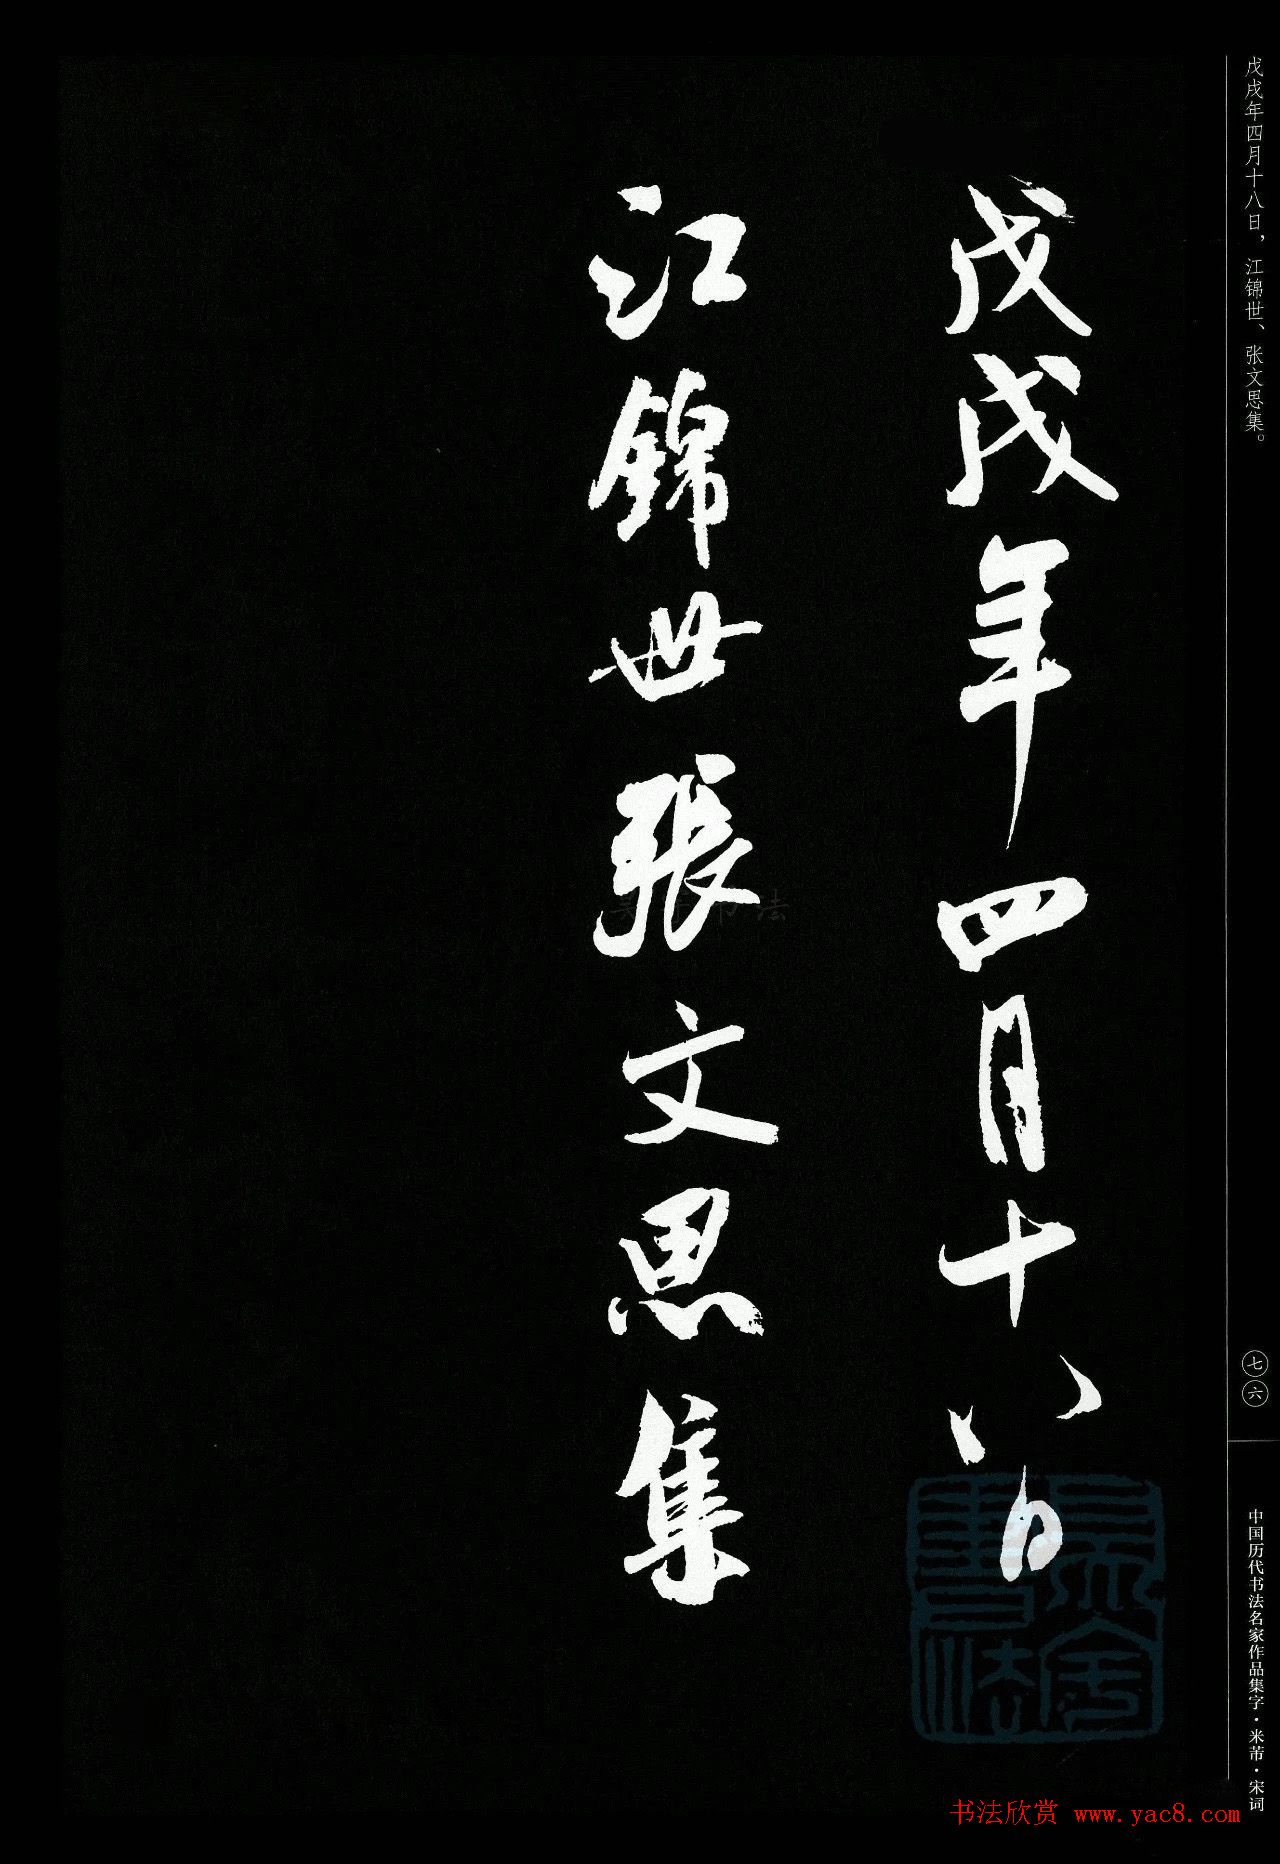 戊戌年四月十八日
江錦世張文思集
戊戌年四月十八日，江锦世、张文思集。
七六
中国历代书法名家作品集字·米芾·宋词
书法欣赏 www.yac8.com